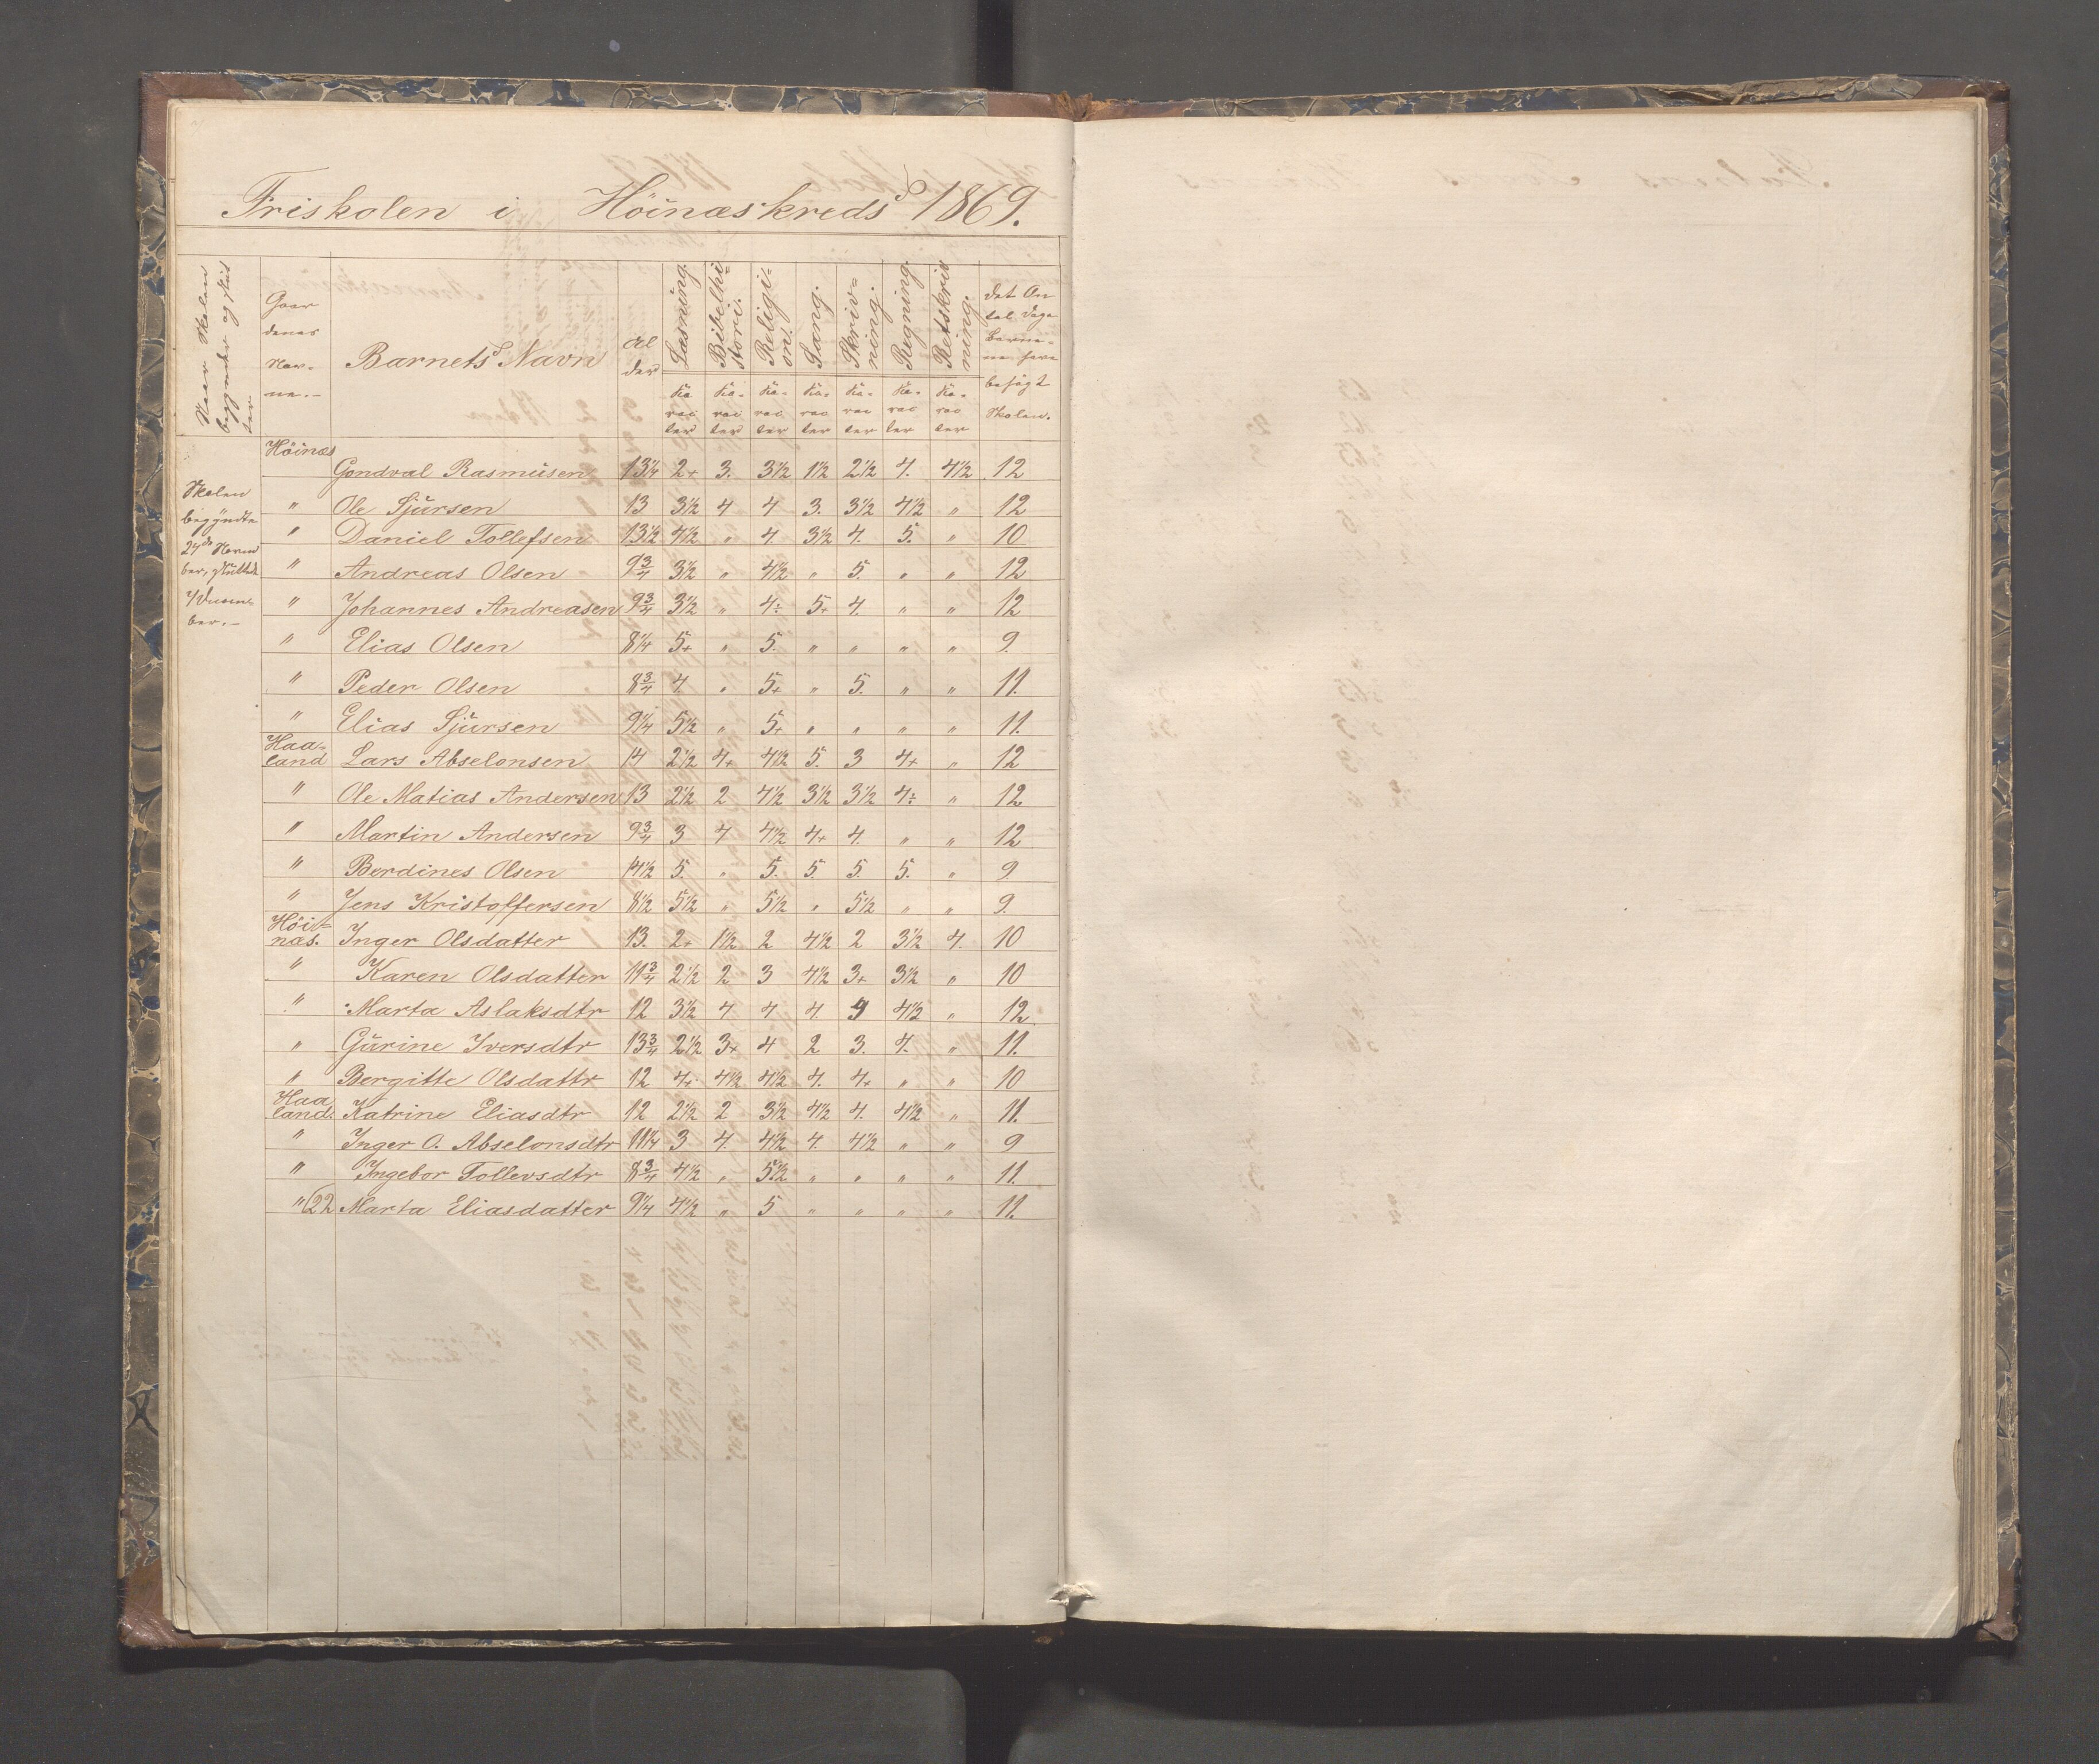 Friskolen i Höinæskreds 1869.
Naar Skolen begynder og slutter
Gaardenes Navne.
Barnets Navn
Alder
Læsning. Karacter
Bibelhistori. Karacter
Religion. Karacter
Sang. Karacter
Skrivning. Karacter
Regning. Karacter
Retskrivning. Karacter
det Antal Dage Børnene have besøgt Skolen.
Skolen begyndte 24de November, sluttede 7 December.
Höinæs Gondval Rasmusen 13¼ 2+ 3. 3½ 1½ 2½ 4. 4½ 12
" Ole Sjursen 13 3½ 4 4 3. 3½ 4½ " 12
" Daniel Tollefsen 13½ 4½ " 4. 3½ 4. 5. " 10
" Andreas Olsen 9¾ 3½ " 4½ " 5. " " 12
" Johannes Andreasen 9¾ 3½ " 4÷ 5+ 4. " " 12
" Elias Olsen 8¼ 5+ " 5. " " " " 9.
" Peder Olsen 8¾ 4 " 5+ " 5. " " 11.
" Elias Sjursen 9¼ 5½ " 5+ " " " " 11.
Haaland Lars Abselonsen 14 2½ 4+ 4½ 5. 3 4+ " 12
" Ole Matias Andersen 13 2½ 2 4½ 3½ 3½ 4÷ " 12
" Martin Andersen 9¾ 3 4 4½ 4+ 4. " " 12
" Berdines Olsen 14½ 5. " 5. 5. 5. 5. " 9
" Jens Kristoffersen 8½ 5½ " 5½ " 5½ " " 9.
Höinæs. Inger Olsdatter 13. 2+ 1½ 2 4½ 2 3½ 4. 10
" Karen Olsdatter 11¾ 2½ 2 3 4½ 3+ 3½ " 10
" Marta Aslaksdtr 12 3½ 4 4 4. 4 4½ " 12
" Gurine Iversdtr 13¾ 2½ 3+ 4 2 3. 4. " 11.
" Bergitte Olsdattr 12 4+ 4½ 4½ 4. 4+ " " 10
Haaland. Katrine Eliasdtr 12 2½ 2 3½ 4½ 4. 4½ " 11.
" Inger O. Abselonsdtr 11¼ 3 4. 4½ 4. 4½ " " 9
" Ingebor Tollevsdtr 8¾ 4½ " 5½ " " " " 11.
" (22 Marta Eliasdatter 9¼ 4½ " 5 " " " " 11.